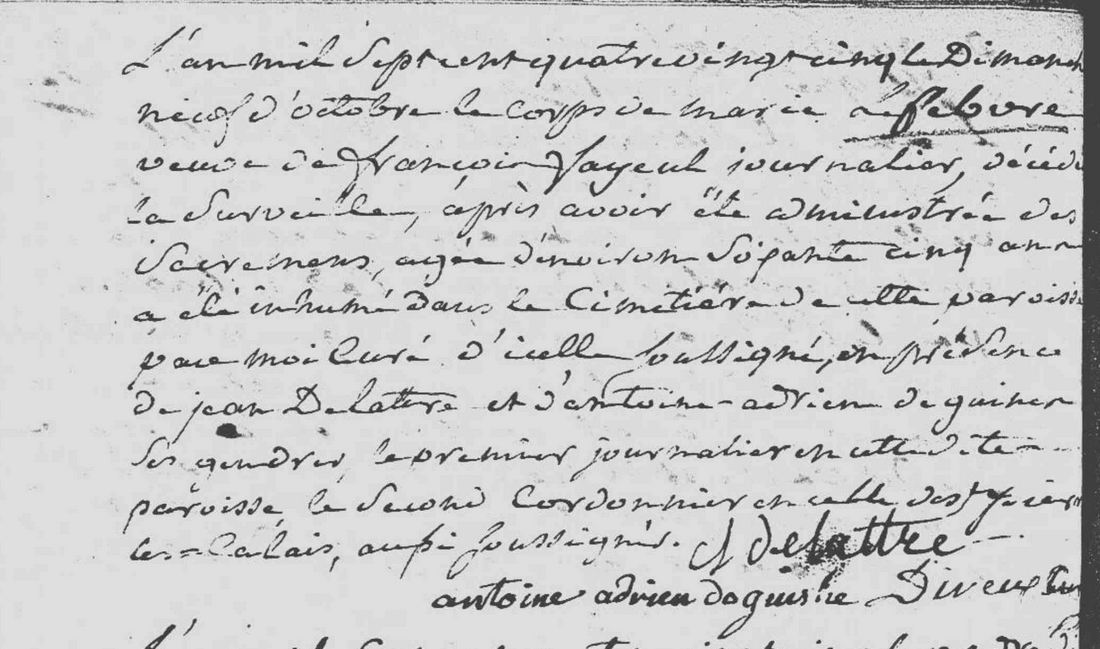 L'an mil Sept cent quatre vingt cinq le Dimanch
neuf d'octobre le corps de marie le febvre
veuve de françois fayeul journalier, décédé
la Surveille, après avoir été administrée des
Sacremens, agée d'environ Soixante cinq ans
a été inhumé dans le Cimetière de cette paroisse
par moi Curé d'icelle soussigné, en présence
de jean Delattre et d'antoine-adrien de guines
Ses gendres, le premier journalier en cette dite
paroisse le Second Cordonnier en celle de st pier
les-Calais, aussi soussignés. J delattre
antoine adrien